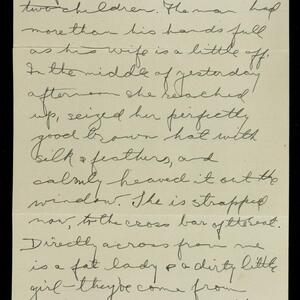 two children. The man had
more than his hands full
as his wife is a little off.
In the middle of yesterday
afternoon she reached
up, seized her perfectly
good brown hat with
silk & feathers, and
calmly heaved it out the
window. She is strapped
now, to the cross bar of the seat.
Directly across from me
is a fat lady & a dirty little
girl - they've come from